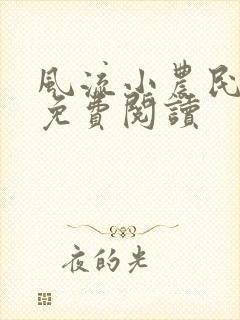 風流小農民
免費閱讀
夜的光